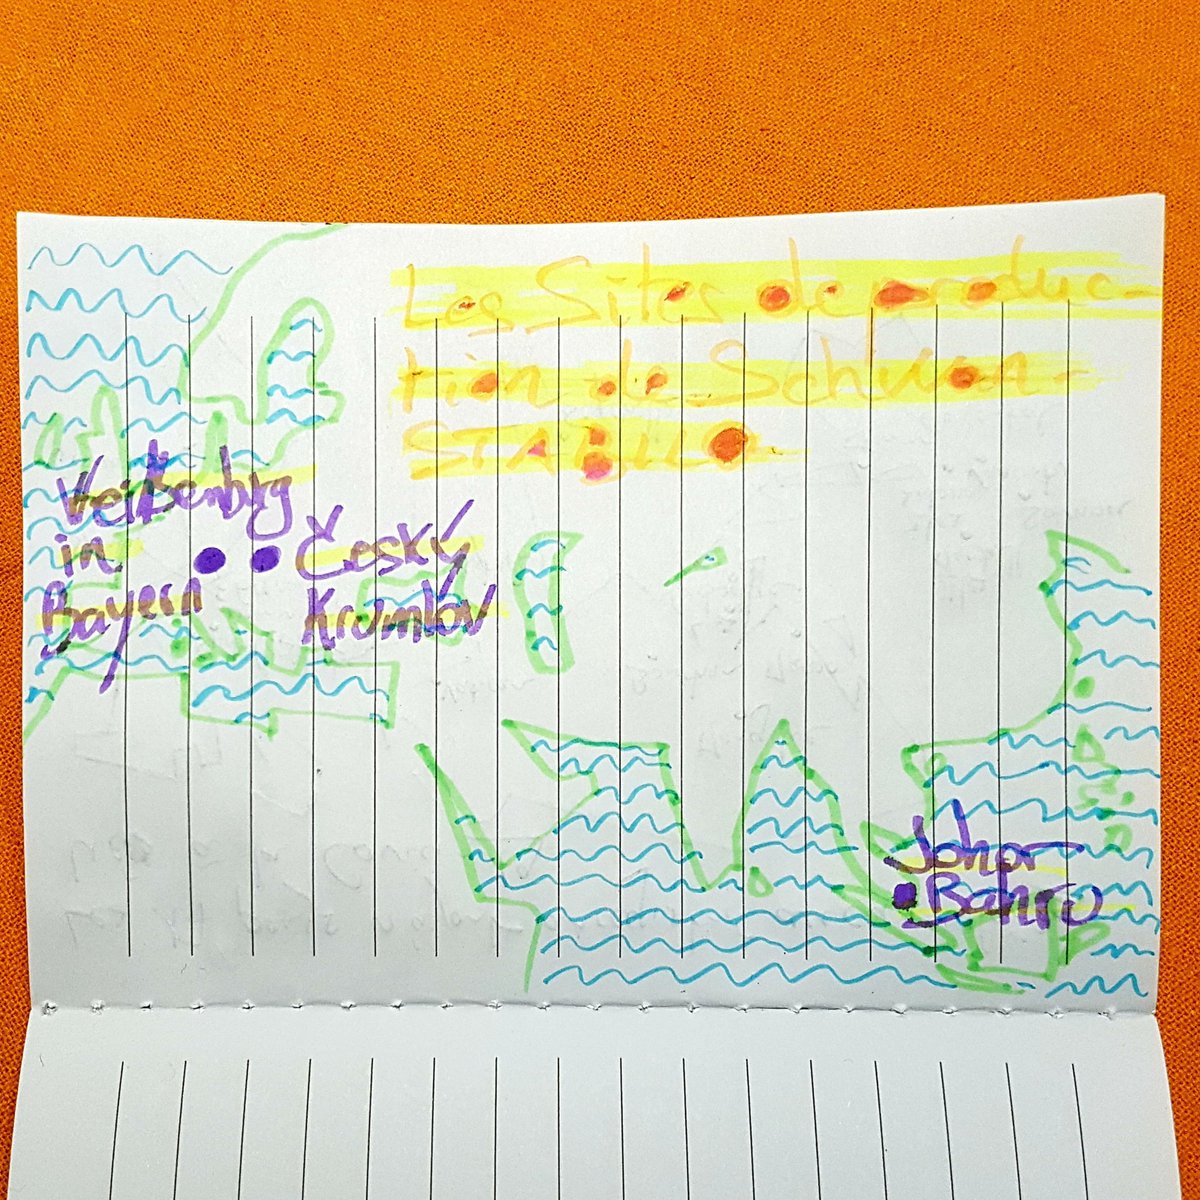 Les Sites de produc-
tion de Schwan-
STABILO
Weißenburg
in
Bayern
Český
Krumlov
Johor
Bahru